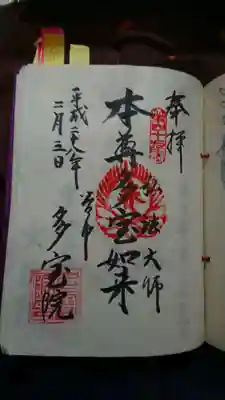 奉拝
弘法大師
本尊多宝如来
谷中
多宝院
平成二八年
二月三日